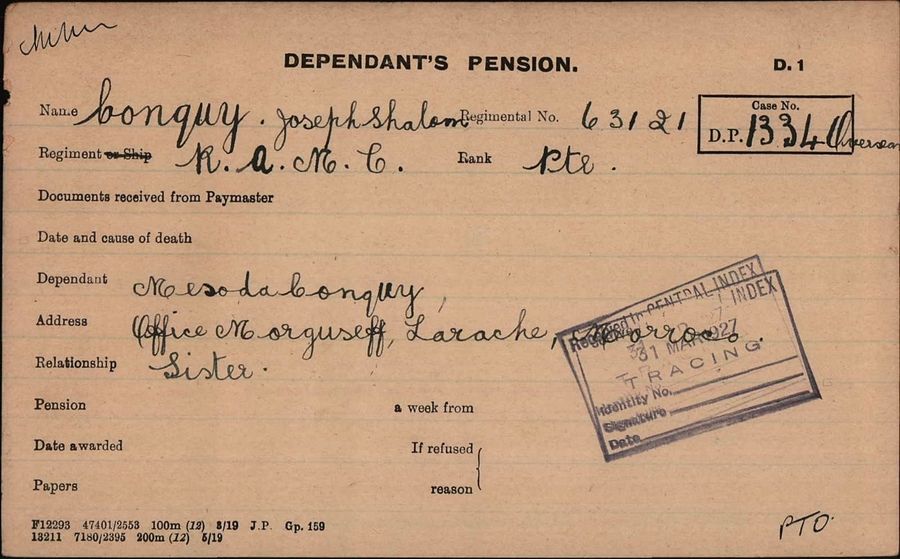 DEPENDANT'S PENSION.
D. 1
Name Conquy. Joseph Shalom Regimental No. 63121
Case No.
D.P. 1334 Overseas
Regiment or Ship R. A. M. C. Rank Pte.
Documents received from Paymaster
Date and cause of death
Dependant Mesoda Conquy,
Address Office Morguseff, Larache, Morroco.
Relationship Sister.
Received in CENTRAL INDEX
INDEX
31 MAR 1927
TRACING
Identity No.
Signature
Date
Pension a week from
Date awarded If refused
Papers reason
F12293 47401/2553 100m (12) 3/19 J.P. Gp. 159
13211 7180/2395 200m (12) 5/19
PTO